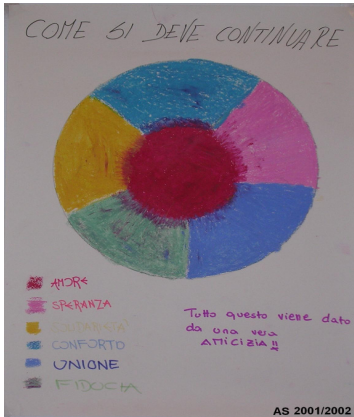 COME SI DEVE CONTINUARE
AMORE
SPERANZA
CONFORTO
UNIONE
FIDUCIA
Tutto questo viene dato
da una vera
AMICIZIA!!
AS 2001/2002